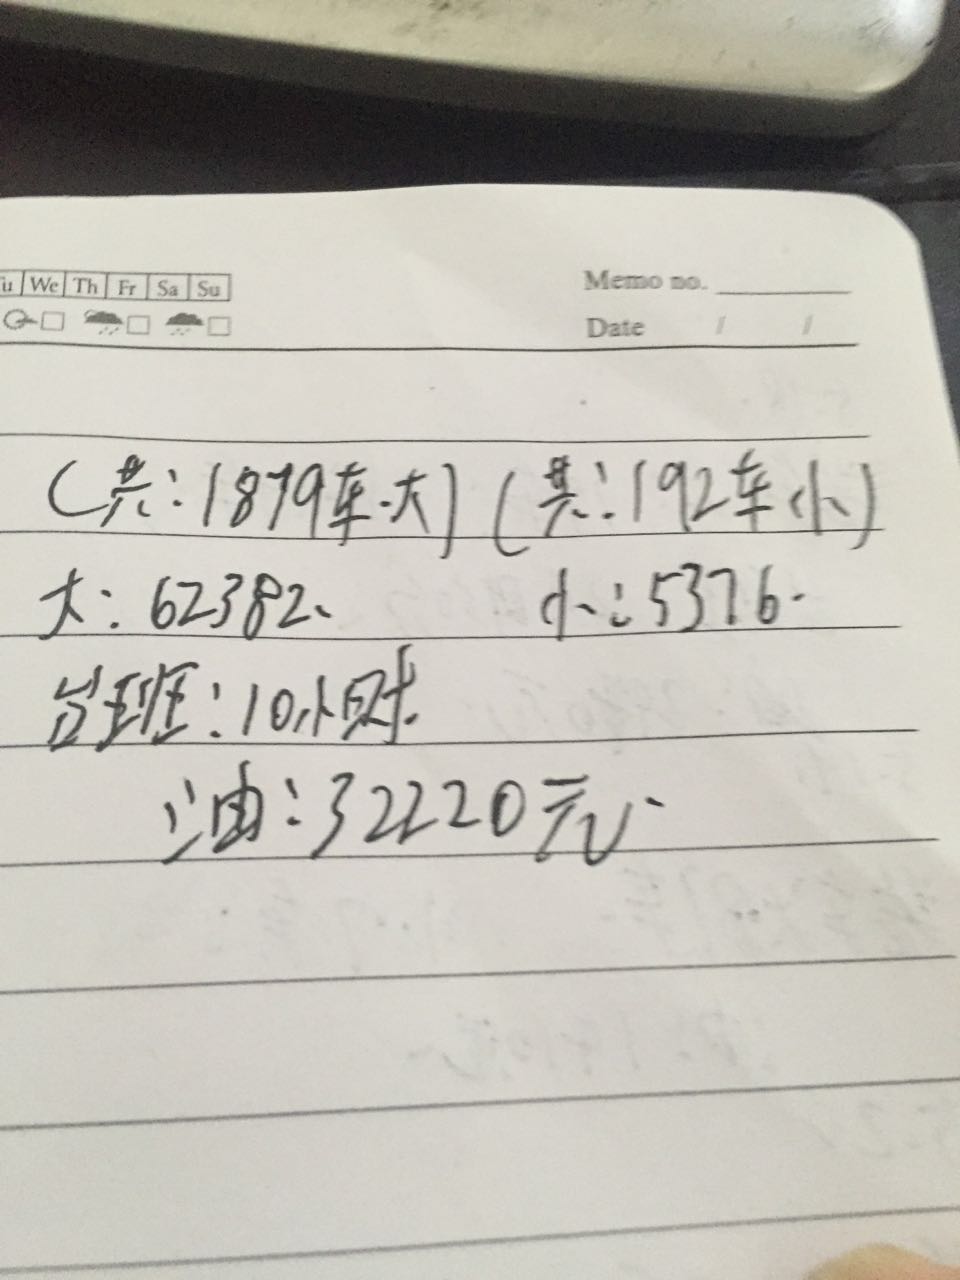 We Th Fr Sa Su
Memo no.
Date / /
(共:1879车.大) (共:192车小)
大:62382、 小:5376.
台班:10小时.
油:32220元、